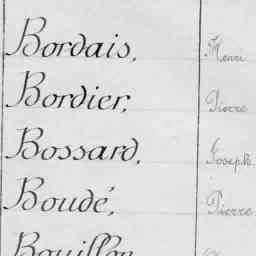 Bordais, Henri
Bordier, Pierre
Bossard, Joseph
Boudé, Pierre
Bouillon